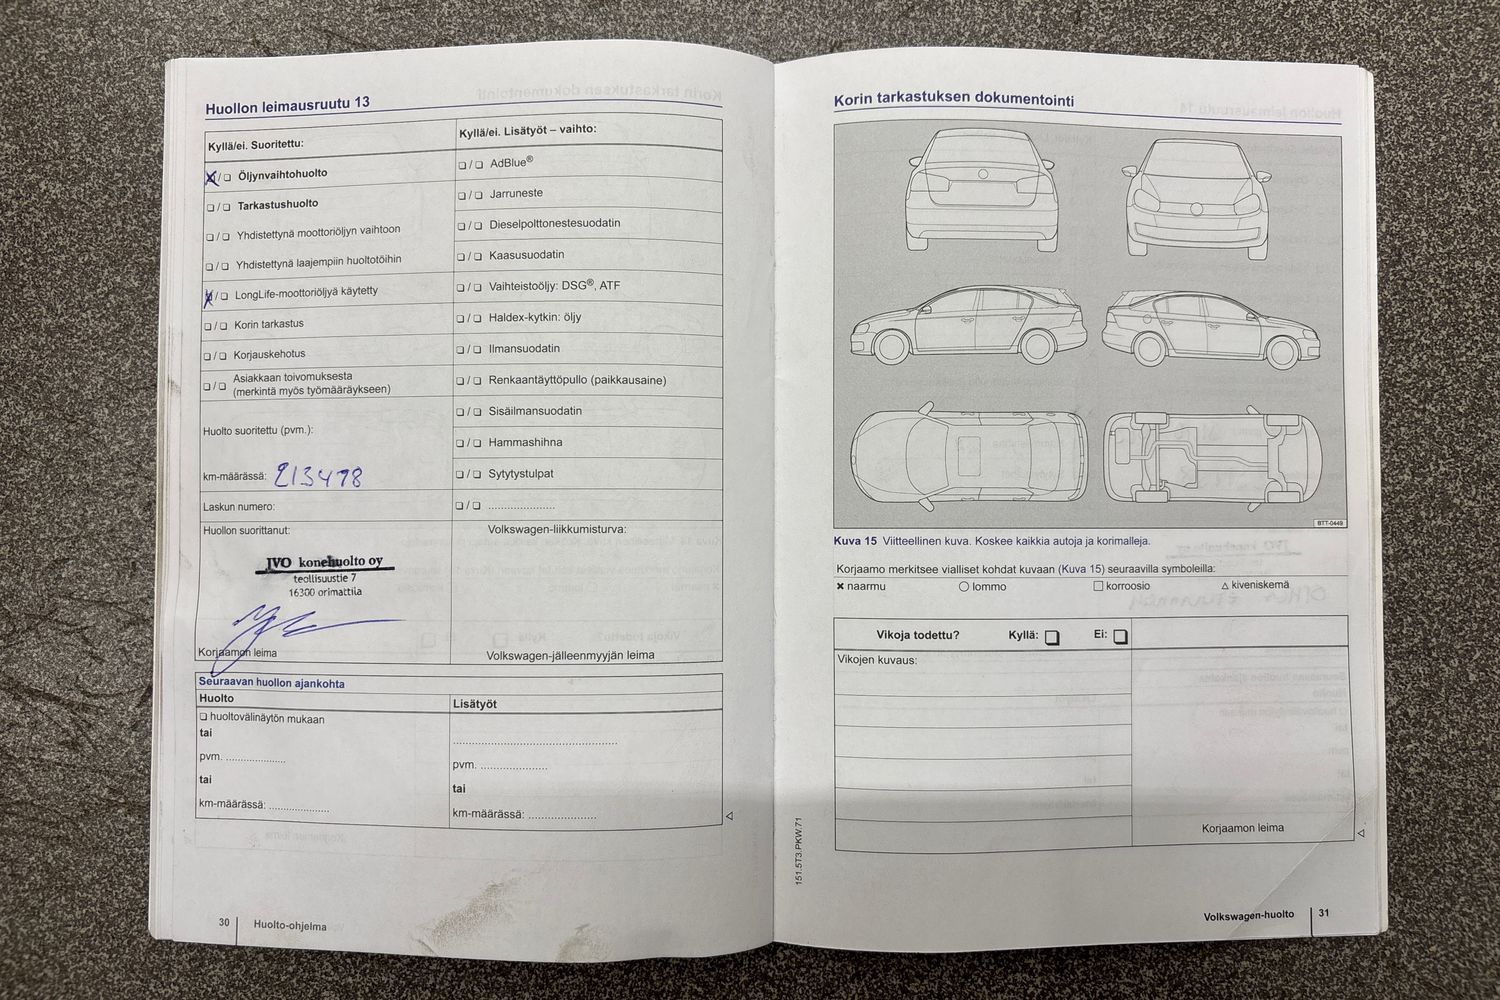 Huollon leimausruutu 13
Kyllä/ei. Suoritettu:
☒ / ❑ Öljynvaihtohuolto
❑ / ❑ Tarkastushuolto
❑ / ❑ Yhdistettynä moottoriöljyn vaihtoon
❑ / ❑ Yhdistettynä laajempiin huoltotöihin
☒ / ❑ LongLife-moottoriöljyä käytetty
❑ / ❑ Korin tarkastus
❑ / ❑ Korjauskehotus
❑ / ❑ Asiakkaan toivomuksesta
(merkintä myös työmääräykseen)
Huolto suoritettu (pvm.):
km-määrässä: 213478
Laskun numero:
Huollon suorittanut:
JVO konehuolto oy
teollisuustie 7
16300 orimattila
Korjaamon leima
Kyllä/ei. Lisätyöt – vaihto:
❑ / ❑ AdBlue®
❑ / ❑ Jarruneste
❑ / ❑ Dieselpolttonestesuodatin
❑ / ❑ Kaasusuodatin
❑ / ❑ Vaihteistoöljy: DSG®, ATF
❑ / ❑ Haldex-kytkin: öljy
❑ / ❑ Ilmansuodatin
❑ / ❑ Renkaantäyttöpullo (paikkausaine)
❑ / ❑ Sisäilmansuodatin
❑ / ❑ Hammashihna
❑ / ❑ Sytytystulpat
❑ / ❑ .....................
Volkswagen-liikkumisturva:
Volkswagen-jälleenmyyjän leima
Seuraavan huollon ajankohta
Huolto
❑ huoltovälinäytön mukaan
tai
pvm. ...................
tai
km-määrässä: ...................
Lisätyöt
....................................................
pvm. .....................
tai
km-määrässä: .....................
30 Huolto-ohjelma
Korin tarkastuksen dokumentointi
BTT-0449
Kuva 15 Viitteellinen kuva. Koskee kaikkia autoja ja korimalleja.
Korjaamo merkitsee vialliset kohdat kuvaan (Kuva 15) seuraavilla symboleilla:
✖ naarmu ○ lommo □ korroosio △ kiveniskemä
Vikoja todettu? Kyllä: ❑ Ei: ❑
Vikojen kuvaus:
Korjaamon leima
151.5T3.PKW.71
Volkswagen-huolto 31